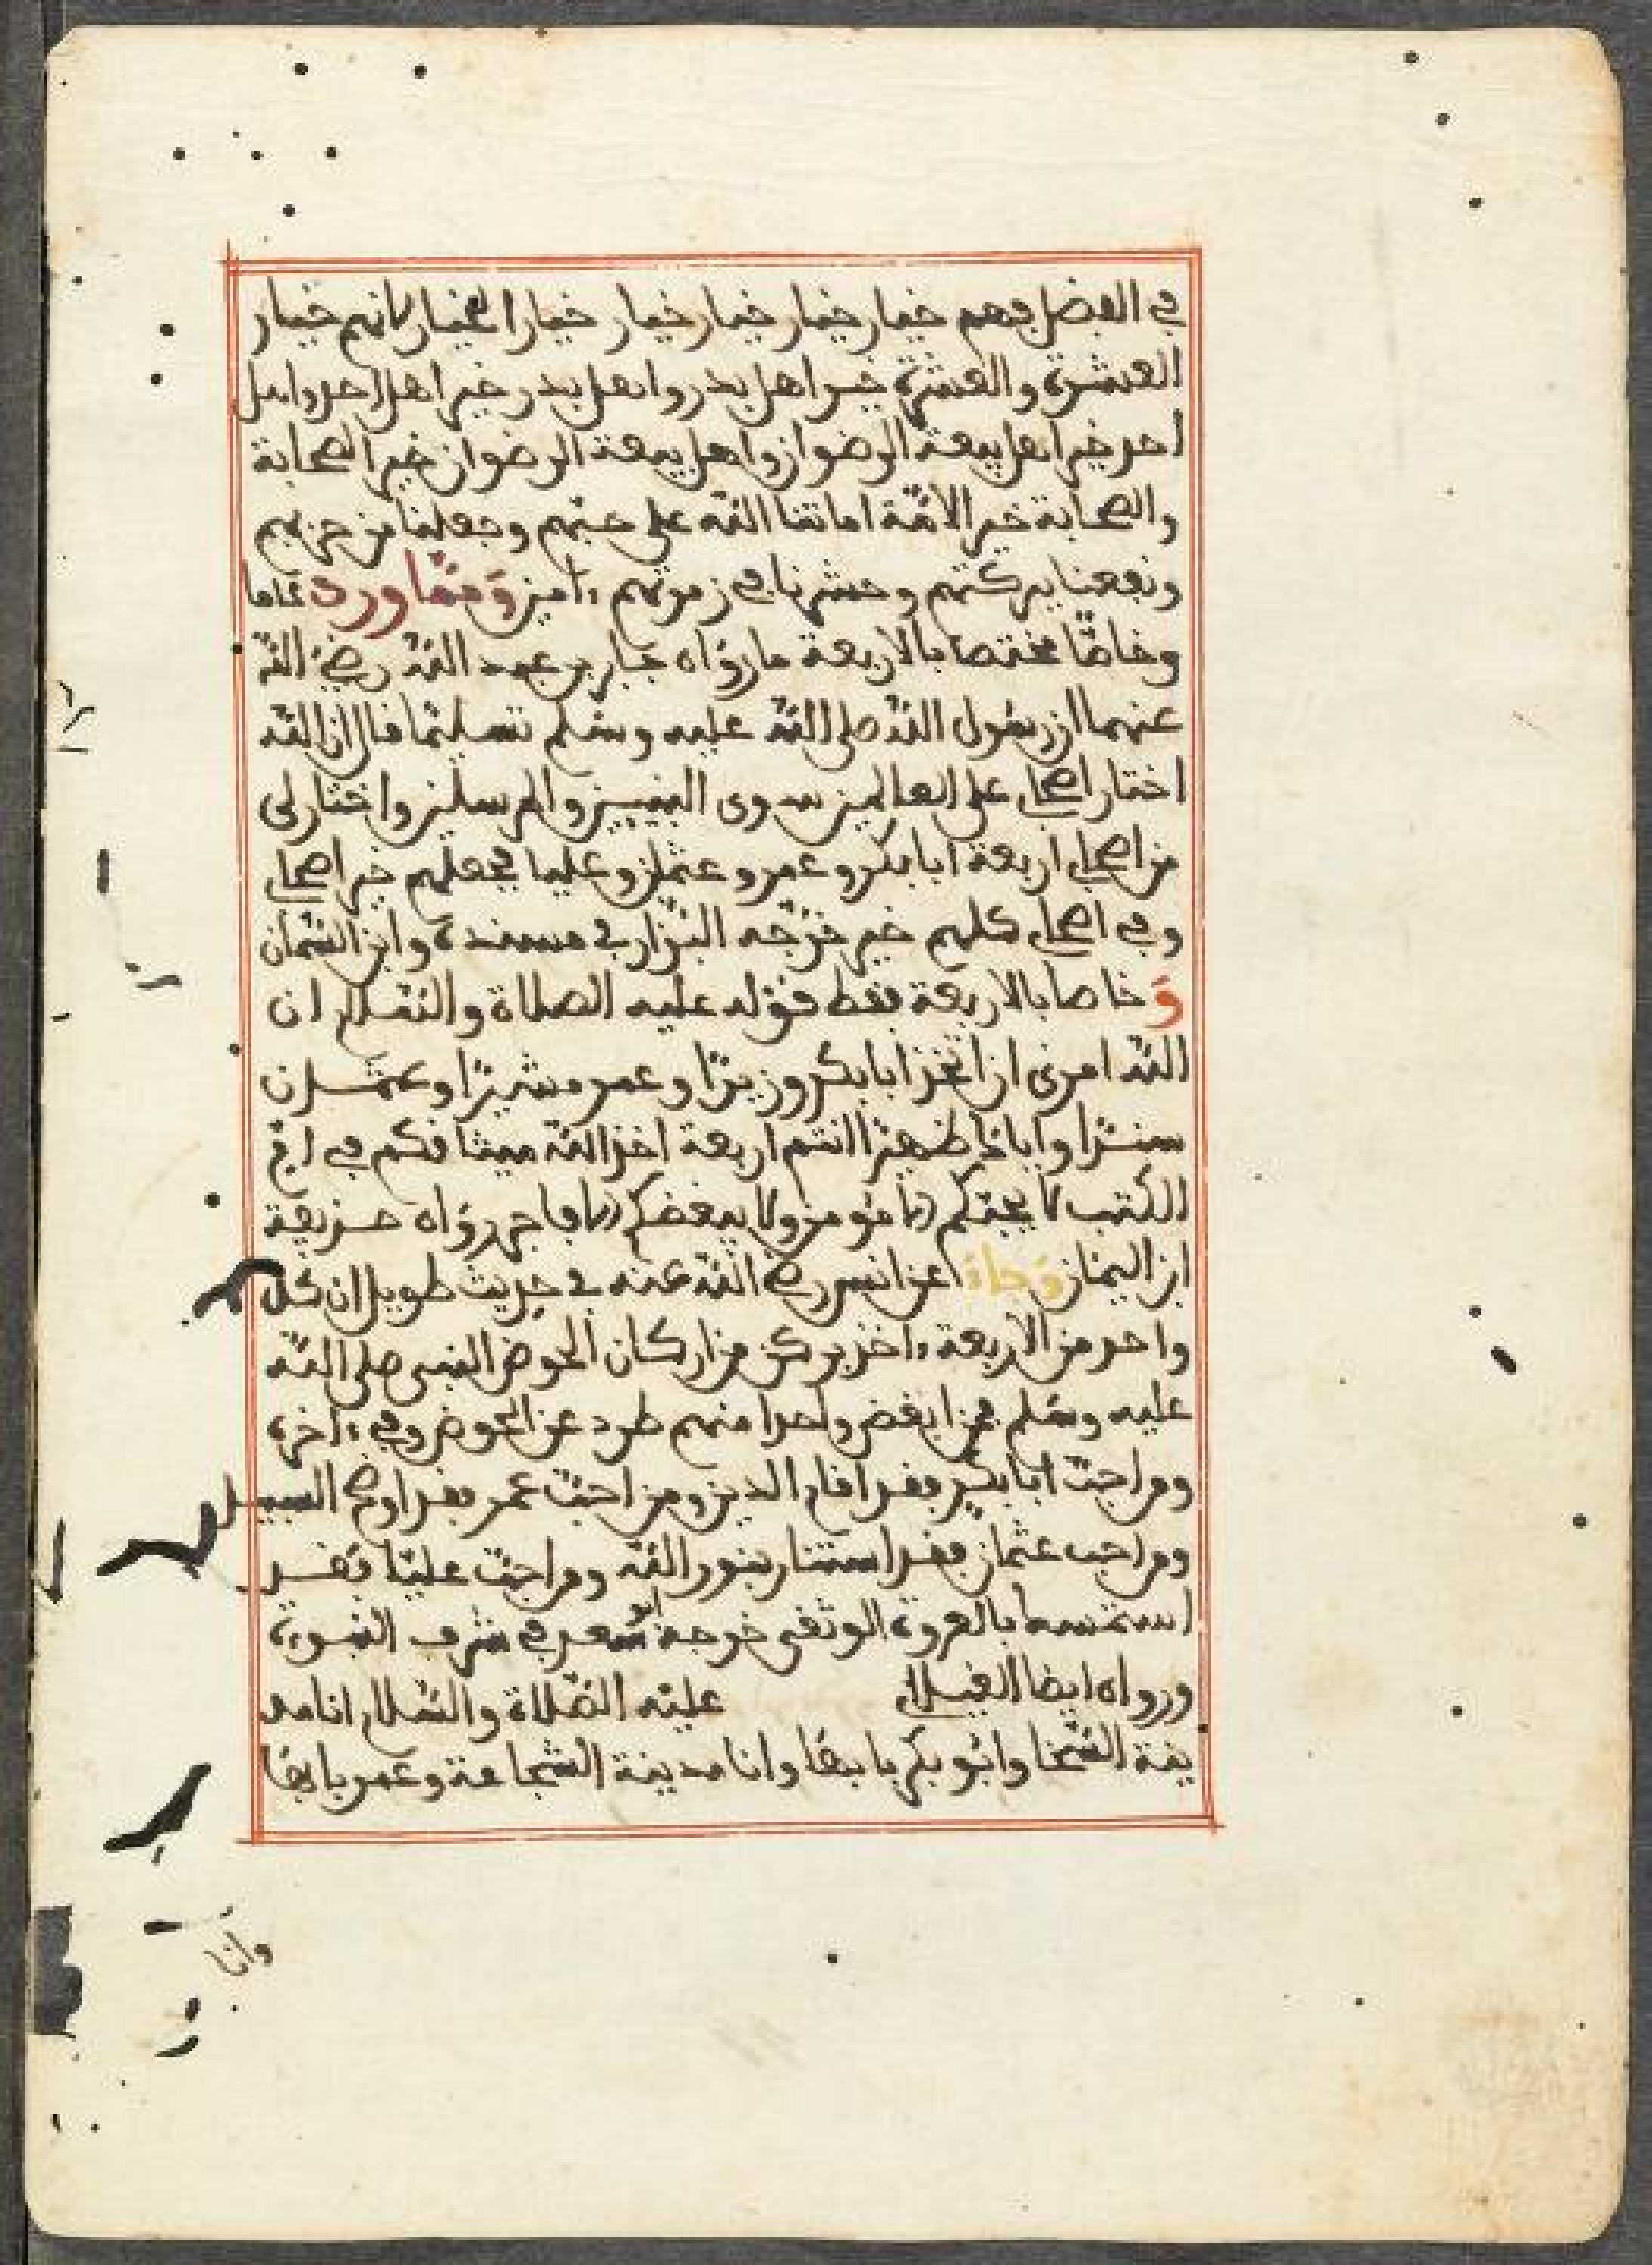 في الفضل فهم خيار خيار خيار خيار خيار الخيار لانهم خيار
العشرة والعشرة خير اهل بدر واهل بدر خير اهل احد واهل
احد خير اهل بيعة الرضوان واهل بيعة الرضوان خير الصحابة
والصحابة خير الامّة اماتنا اللّه على حبّهم وجعلنا من حزبهم
ونفعنا ببركتهم وحشرنا في زمرتهم ءامين وَممّا ورد عاما
وخاصّا مختصا بالاربعة ما روَاه جابر بن عبد اللّه رضي اللّه
عنهما ان رسُول اللّه صلى اللّه عليه وسَلم تسليمًا قال ان اللّه
اختار اصحابي على العالمين سوى النبيين والمرسلين واختار لي
من اصحابي اربعة ابا بكر وعمر وعثمان وعليا فجعلهم خير اصحابي
وفي اصحابي كلهم خير خرّجه البزّار في مسنده وابن السّمان
وَخاصا بالاربعة فقط قوله عليه الصلاة والسّلام ان
اللّه امرني ان اتخذ ابا بكر وزيرًا وعمر مشيرًا وعثمان
سندًا واياك ظهيرًا انتم اربعة اخذ اللّه ميثاقكم في امّ
الكتب لا يحبّكم الا مُومن ولا يبغضكم الا فاجر روَاه حذيفة
ابن اليمان وَجاءَ عن انس رضي اللّه عنه في حديث طويل ان كل
واحد من الاربعة ءاخذ بركن من اركان الحوض النبي صلى اللّه
عليه وسَلم فمن ابغض واحدا منهم طرد عن الحوض وفي ءاخره
ومن احبّ ابا بكر فقد اقام الدين ومن احبّ عمر فقد اوضح السبيل
ومن احب عثمان فقد استنار بنور اللّه ومن احبّ عليّا فقد
استمسك بالعروة الوثقى خرجه ابو سَعد في شرف النبوة
ورواه ايضا الغيلاني عليْه الصّلاة والسّلام انا مد
ينة السّخا وابُو بكر بابها وانا مدينة الشجاعة وعمر بابها
وانا